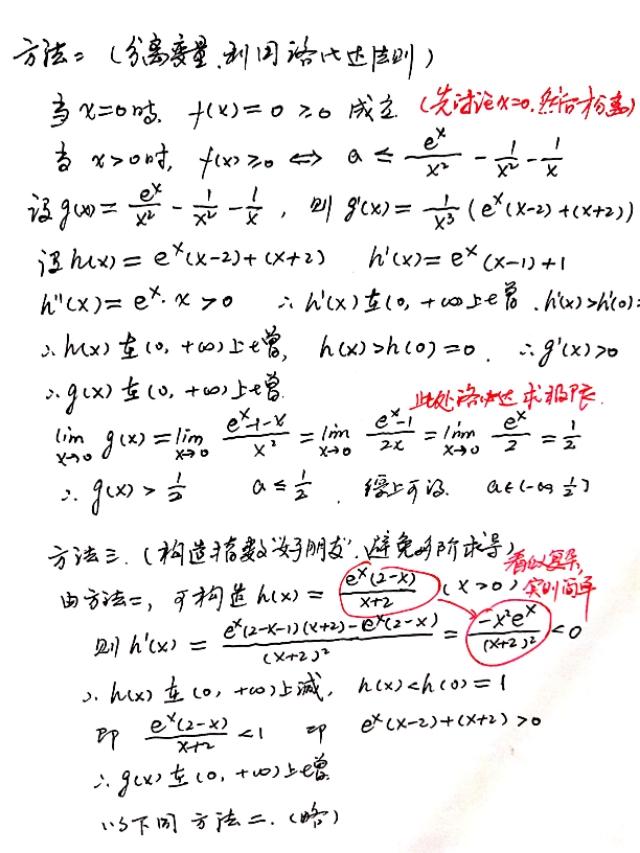 方法二（分离变量，利用洛必达法则）
当 x=0 时，f(x)=0 ≥0 成立（先讨论x=0，然后分离）
当 x>0 时，f(x)≥0 ⇔ a ≤ e^x/x² - 1/x² - 1/x
设 g(x)= e^x/x² - 1/x² - 1/x，则 g'(x)= 1/x³ (e^x(x-2)+(x+2))
设 h(x)= e^x(x-2)+(x+2) h'(x)= e^x(x-1)+1
h''(x)= e^x·x >0 ∴ h'(x) 在(0,+∞)上↑增，h'(x)>h'(0)=
∴ h(x) 在(0,+∞)上↑增，h(x)>h(0)=0，∴ g'(x)>0
∴ g(x) 在(0,+∞)上↑增
此处洛必达求极限
lim x→0 g(x)= lim x→0 (e^x-1-x)/x² = lim x→0 (e^x-1)/2x = lim x→0 e^x/2 = 1/2
∴ g(x) > 1/2 a ≤ 1/2，综上可得 a∈(-∞ 1/2]
方法三（构造指数"好朋友"，避免多阶求导）
看似复杂，实则简单
由方法二，可构造 h(x)= e^x(2-x)/(x+2) （x>0）
则 h'(x)= (e^x(2-x-1)(x+2)-e^x(2-x))/(x+2)² = -x²e^x/(x+2)² <0
∴ h(x) 在(0,+∞)上减，h(x)<h(0)=1
即 e^x(2-x)/(x+2) <1 即 e^x(x-2)+(x+2)>0
∴ g(x) 在(0,+∞)上↑增
以下同方法二.（略）